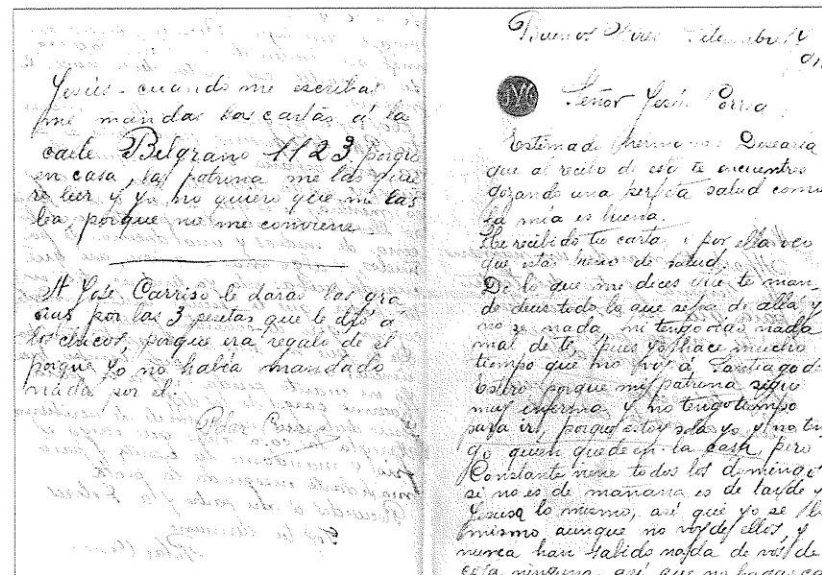 Jesús - cuando me escribas
me mandas las cartas á la
calle Belgrano 1123 porque
en casa, la patrona me las quie
re leer y yo no quiero que me las
lea, porque no me conviene
A José Carriso le darás las gra
cias por las 3 pesetas que le dió á
los chicos, porque era regalo de él
porque yo no había mandado
nada por él.
Pilar
Buenos Aires
Señor Jesús
Estimado hermano: Desearía
que al recibo de esta te encuentres
gozando una perfecta salud como
la mía es buena.
He recibido tu carta, i por ella veo
que estás bueno de salud.
De lo que me dices que te man-
de decir todo lo que sepa de allá y
no se nada, ni tengo oído nada
mal de tí, pues yo hace mucho
tiempo que no voy á Santiago d
Estero porque mi patrona sigue
muy enferma, y no tengo tiempo
para ir, porque estoy sola yo y no ten
go quien quede en la casa, pero
Constante viene todos los domingos
si no es de mañana, es de tarde y
Jesusa lo mismo, así que yo se lo
mismo aunque no voy de ellos, y
nunca han sabido nada de vos de
cosa ninguna, así que no hagas ca